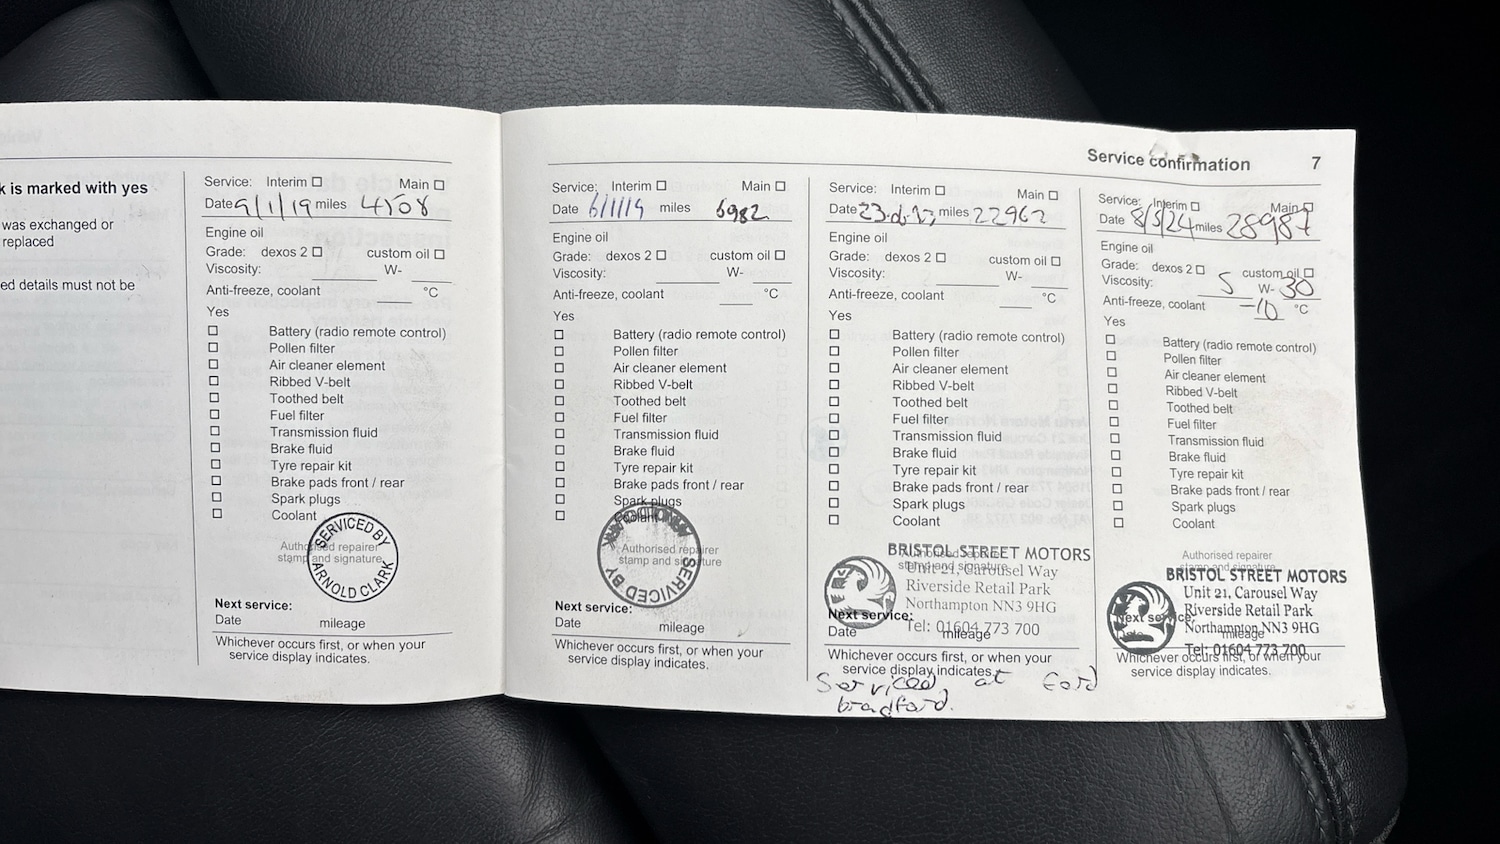 k is marked with yes
was exchanged or
replaced
ed details must not be
Service: Interim Main
Date 9/1/19 miles 4508
Engine oil
Grade: dexos 2 custom oil
Viscosity: W-
Anti-freeze, coolant °C
Yes
Battery (radio remote control)
Pollen filter
Air cleaner element
Ribbed V-belt
Toothed belt
Fuel filter
Transmission fluid
Brake fluid
Tyre repair kit
Brake pads front / rear
Spark plugs
Coolant
Authorised repairer
stamp and signature
SERVICED BY
ARNOLD CLARK
Next service:
Date mileage
Whichever occurs first, or when your
service display indicates.
Service confirmation 7
Service: Interim Main
Date 6/1/19 miles 6982
Engine oil
Grade: dexos 2 custom oil
Viscosity: W-
Anti-freeze, coolant °C
Yes
Battery (radio remote control)
Pollen filter
Air cleaner element
Ribbed V-belt
Toothed belt
Fuel filter
Transmission fluid
Brake fluid
Tyre repair kit
Brake pads front / rear
Spark plugs
Coolant
Authorised repairer
stamp and signature
SERVICED BY
Next service:
Date mileage
Whichever occurs first, or when your
service display indicates.
Service: Interim Main
Date miles 22962
Engine oil
Grade: dexos 2 custom oil
Viscosity: W-
Anti-freeze, coolant °C
Yes
Battery (radio remote control)
Pollen filter
Air cleaner element
Ribbed V-belt
Toothed belt
Fuel filter
Transmission fluid
Brake fluid
Tyre repair kit
Brake pads front / rear
Spark plugs
Coolant
BRISTOL STREET MOTORS
Authorised repairer
stamp and signature
Unit 21, Carousel Way
Riverside Retail Park
Northampton NN3 9HG
Next service:
Tel: 01604 773 700
Date mileage
Whichever occurs first, or when your
service display indicates.
Serviced at Ford
bradford.
Service: Interim Main
Date 8/3/24 miles 28987
Engine oil
Grade: dexos 2 custom oil
Viscosity: 5 W- 30
Anti-freeze, coolant -10 °C
Yes
Battery (radio remote control)
Pollen filter
Air cleaner element
Ribbed V-belt
Toothed belt
Fuel filter
Transmission fluid
Brake fluid
Tyre repair kit
Brake pads front / rear
Spark plugs
Coolant
Authorised repairer
stamp and signature
BRISTOL STREET MOTORS
Unit 21, Carousel Way
Riverside Retail Park
Next service:
Northampton NN3 9HG
Date mileage
Tel: 01604 773 700
Whichever occurs first, or when your
service display indicates.